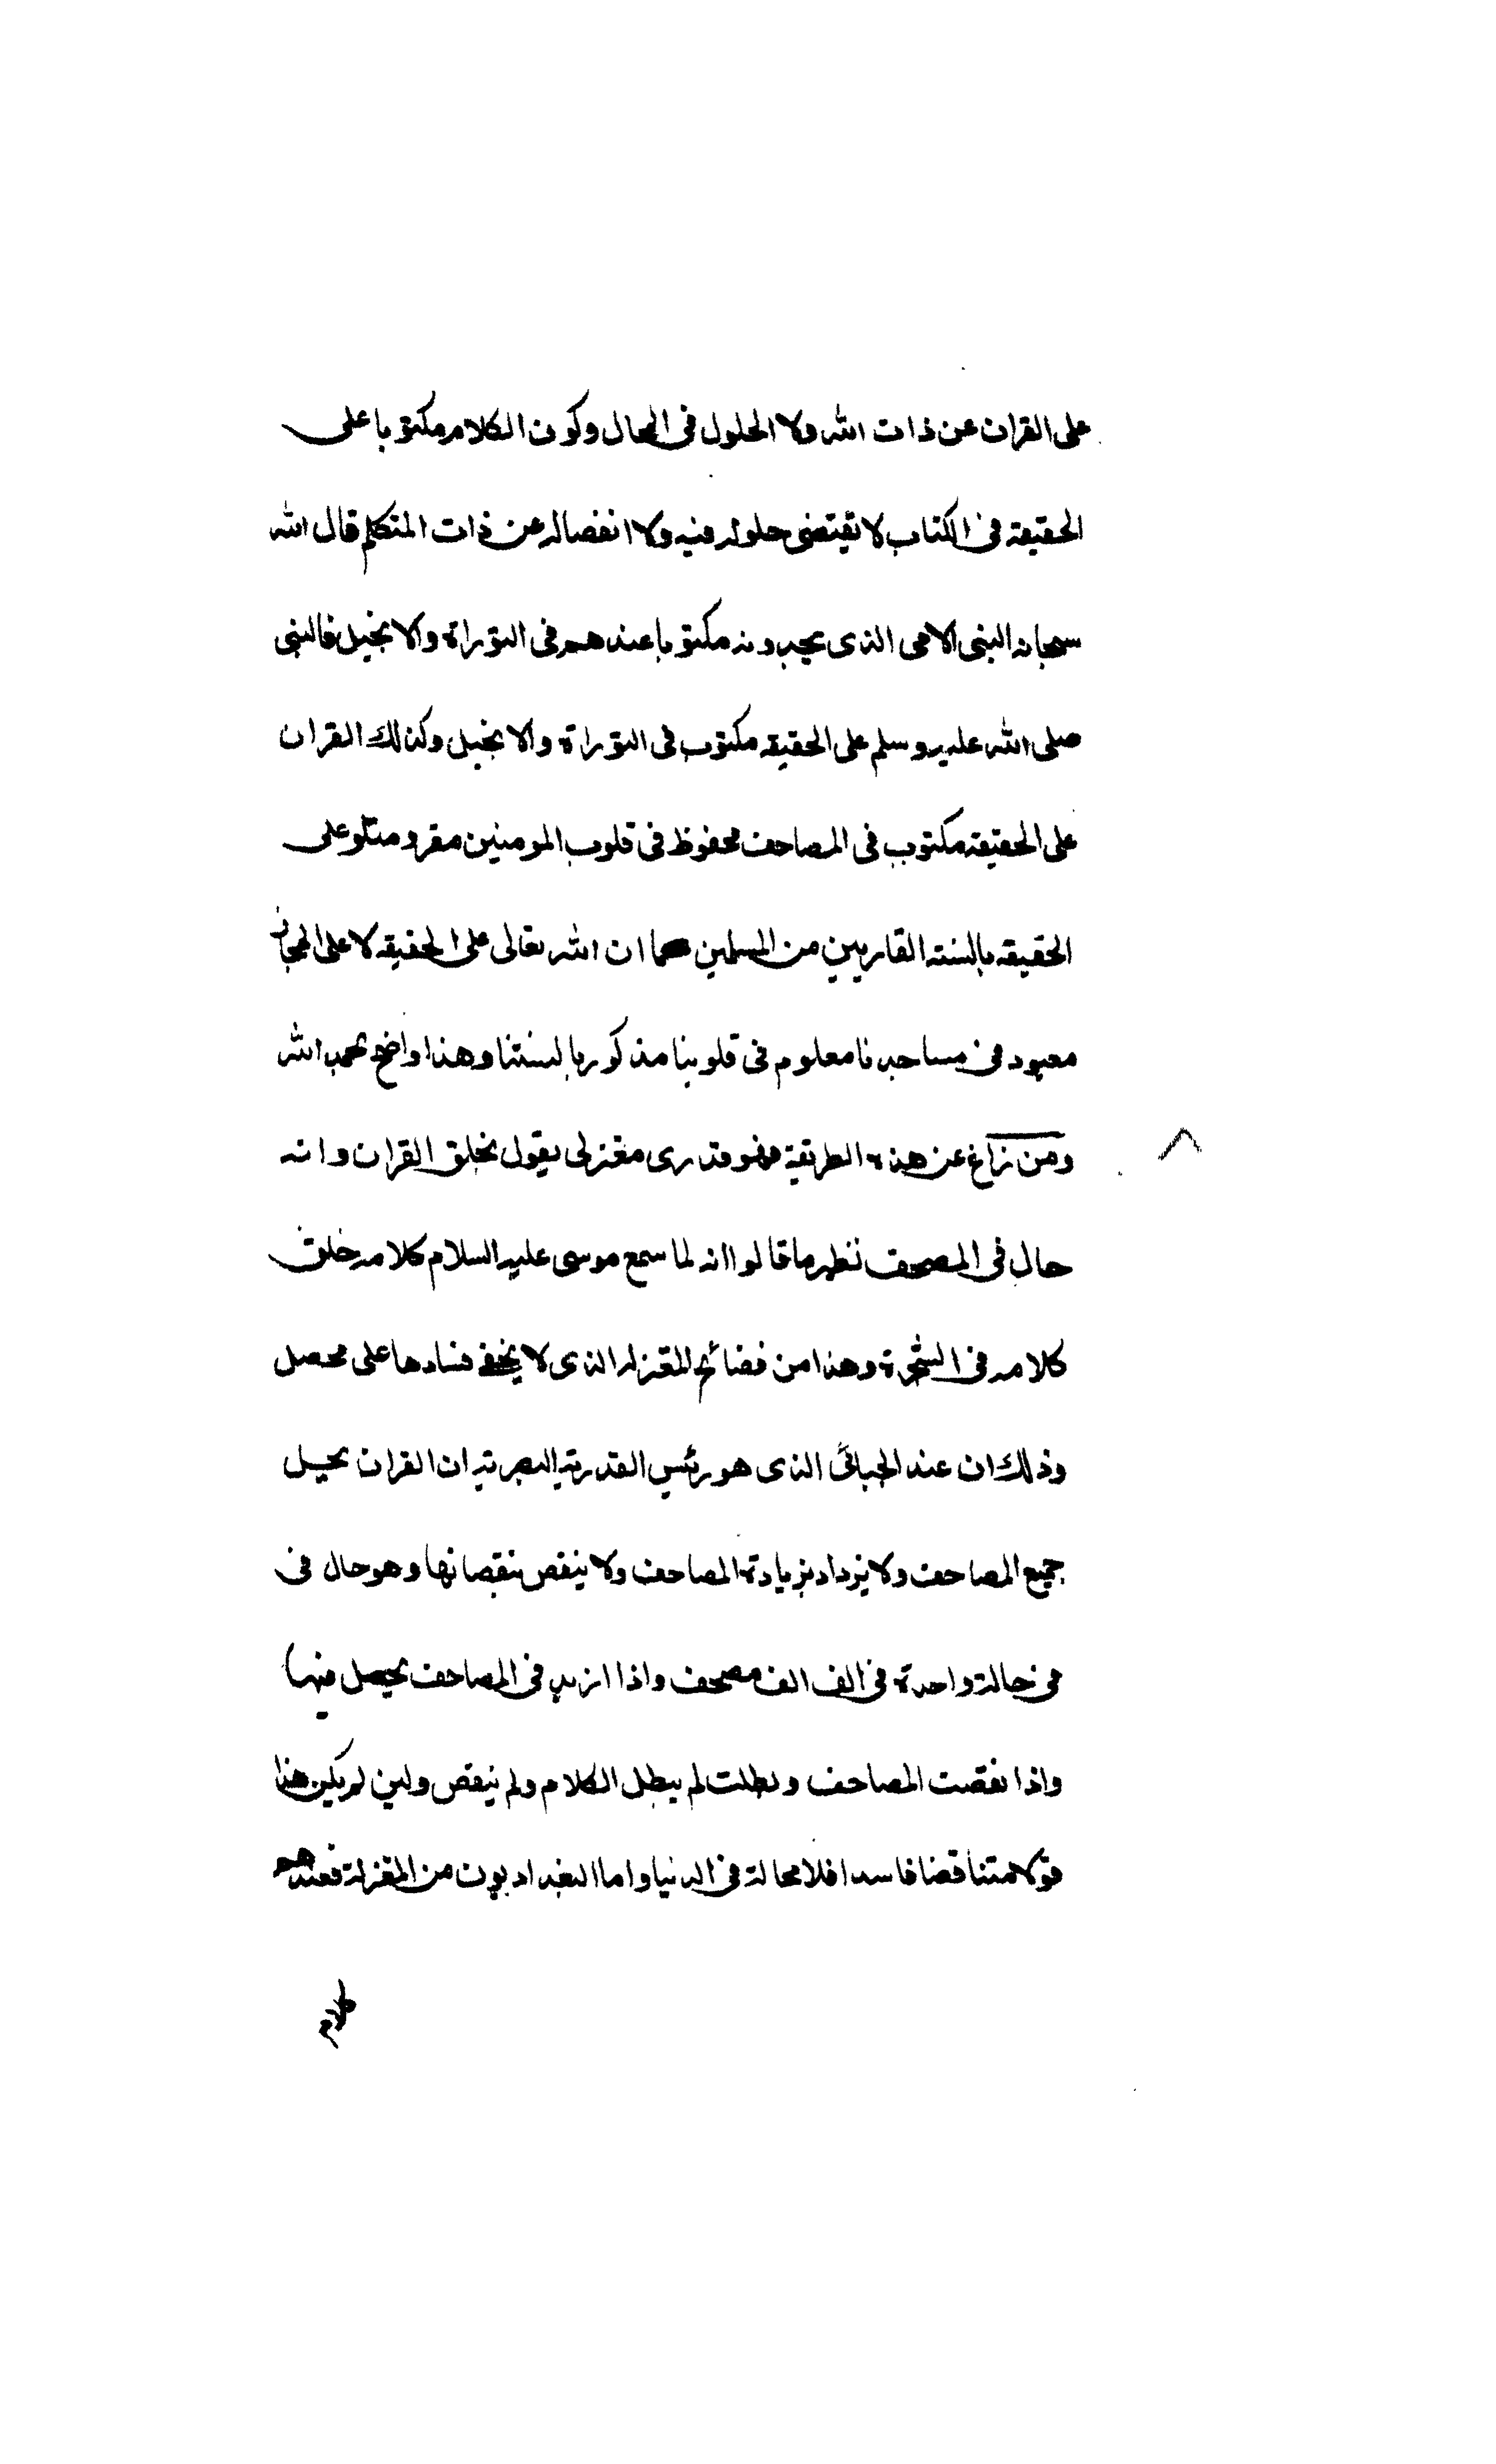 على القران عن ذات الله ولا الحلول فى المحال وكون الكلام مكتوبا على
الحقيقة فى الكتاب لا تقتضى حلوله فيه ولا انفصاله عن ذات المتكلم قال الله
سبحانه النبى الامى الذى يجدونه مكتوبا عندهم فى التوراة والانجيل فالنبى
صلى الله عليه وسلم على الحقيقه مكتوب فى التوراة والانجيل وكذلك القران
على الحقيقة مكتوب فى المصاحف محفوظ فى قلوب المومنين مقرو متلو على
الحقيقه بالسنته القاريين من المسلمين كما ان الله تعالى على الحقيقه لا على المجاز
معبود فى مساجدنا معلوم فى قلوبنا مذكور بالسنتنا وهذا واضح بحمد الله
ومن زاغ عن هذه الطريقة فهو قدرى معتزلى يقول بخلق القران وانه
حال فى المصحف نظير ما قالوا انه لما سمع موسى عليه السلام كلامه خلق
كلامه فى الشجرة وهذا من فضائح المعتزله الذى لا يخفى فسادها على محصل
وذلك ان عند الجبائى الذى هو رئيس القدرية البصرية ان القران يحل
جميع المصاحف ولا يزداد بزيادة المصاحف ولا ينقص بنقصانها وهو حال فى
فى حالة واحدة فى الف الف مصحف واذا ازيد فى المصاحف يحصل فيها
واذا نقصت المصاحف وبطلت لم يبطل الكلام ولم ينقص ولين لم يكن هذا
قولا متناقضا فاسدا فلا محالة فى الدنيا واما البغداديون من المعتزلة فعندهم